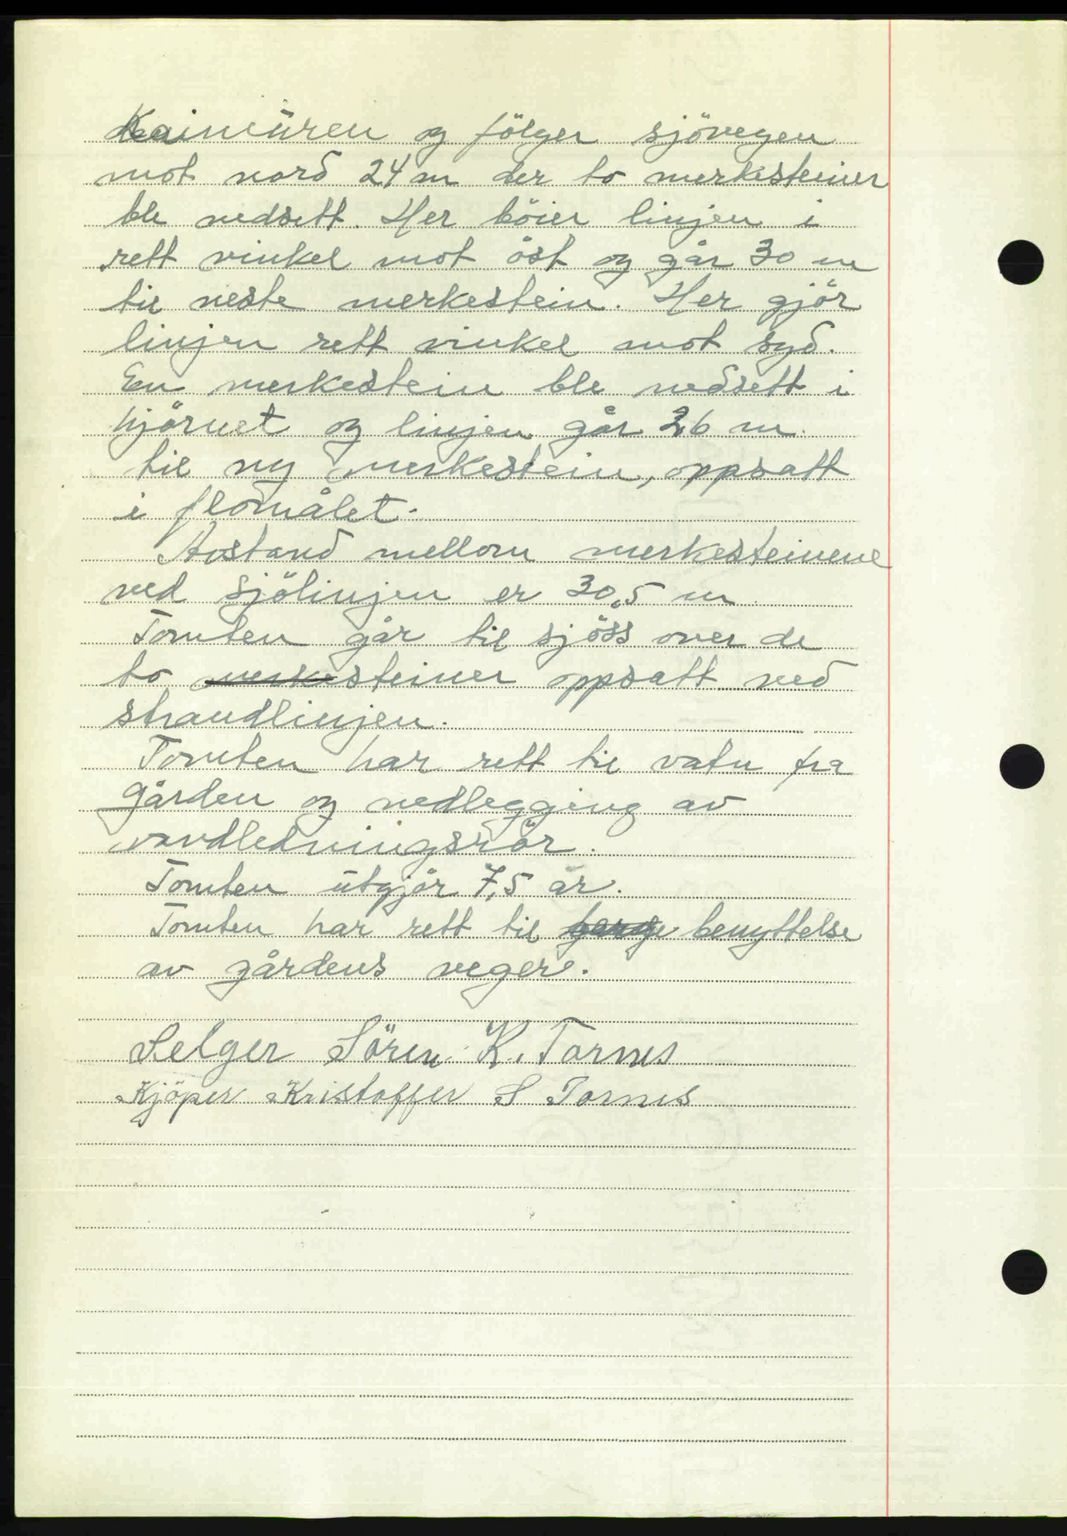 Kaimüren og følger sjövegen
mot nord 24 m der to merkesteiner
ble nedsett. Her böier linjen i
rett vinkel mot öst og går 30 m
til neste merkestein. Her gjör
linjen rett vinkel mot syd.
En merkestein ble nedsett i
hjörnet og linjen går 26 m.
til ny merkestein, oppsatt
i flomålet.
Avstand mellom merkesteinene
ved sjölinjen er 30,5 m
Tomten går til sjöss over de
to merkesteiner oppsatt ved
strandlinjen.
Tomten har rett til vatn fra
gården og nedlegging av
vandledningsrör.
Tomten ütgjör 7,5 ar.
Tomten har rett til benyttelse
av gårdens veger.
Selger Sören K. Tornes
Kjöper Kristoffer S Tornes